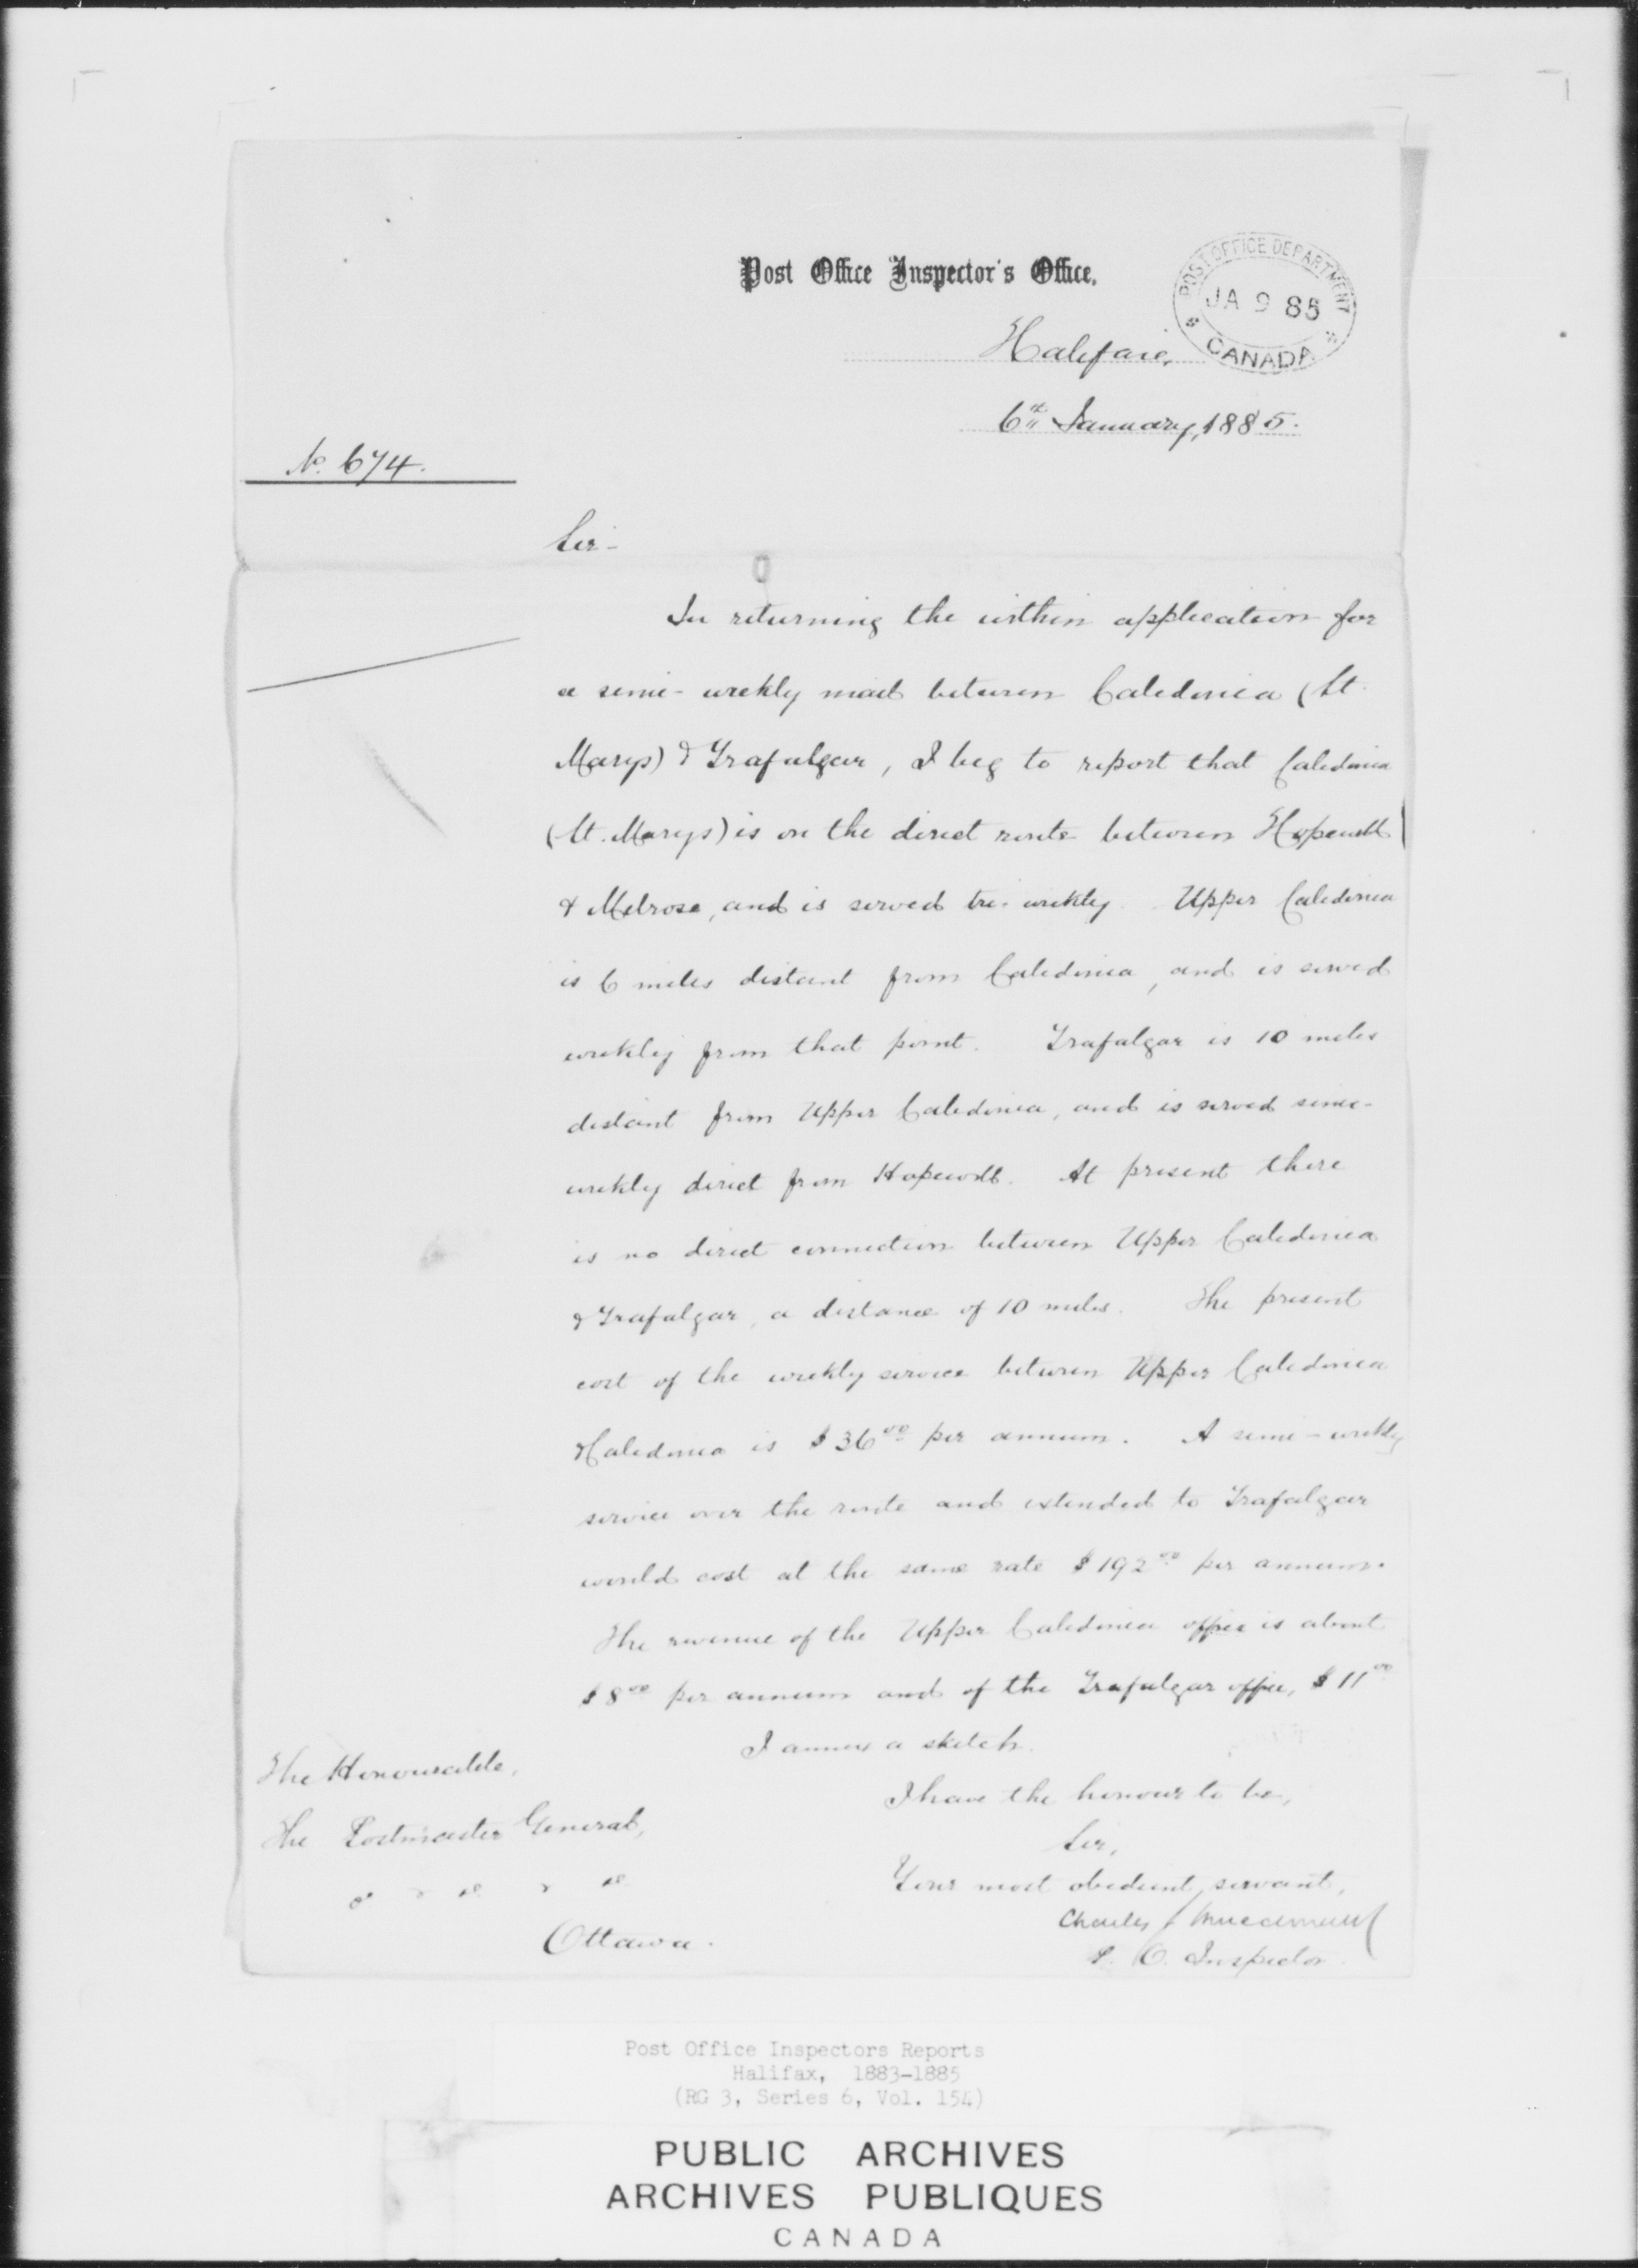 Post Office Inspector's Office,
POST OFFICE DEPARTMENT
JA 9 85
CANADA
Halifax,
6th January, 1885.
No. 674.
Sir -
In returning the within application for
a semi-weekly mail between Caledonia (St.
Marys) & Trafalgar, I beg to report that Caledonia
(St. Marys) is on the direct route between Hopewell
& Melrose, and is served tri-weekly. Upper Caledonia
is 6 miles distant from Caledonia, and is served
weekly from that point. Trafalgar is 10 miles
distant from Upper Caledonia, and is served semi-
weekly direct from Hopewell. At present there
is no direct connection between Upper Caledonia
& Trafalgar, a distance of 10 miles. The present
cost of the weekly service between Upper Caledonia
& Caledonia is $36.00 per annum. A semi-weekly
service over the route and extended to Trafalgar
would cost at the same rate $192.00 per annum.
The revenue of the Upper Caledonia office is about
$8.00 per annum and of the Trafalgar office, $11.00
I annex a sketch.
I have the honour to be,
Sir,
Your most obedient servant,
Charles J
P. O. Inspector.
The Honourable,
The Postmaster General,
Ottawa.
Post Office Inspectors Reports
Halifax, 1883-1885
(RG 3, Series 6, Vol. 154)
PUBLIC ARCHIVES
ARCHIVES PUBLIQUES
CANADA